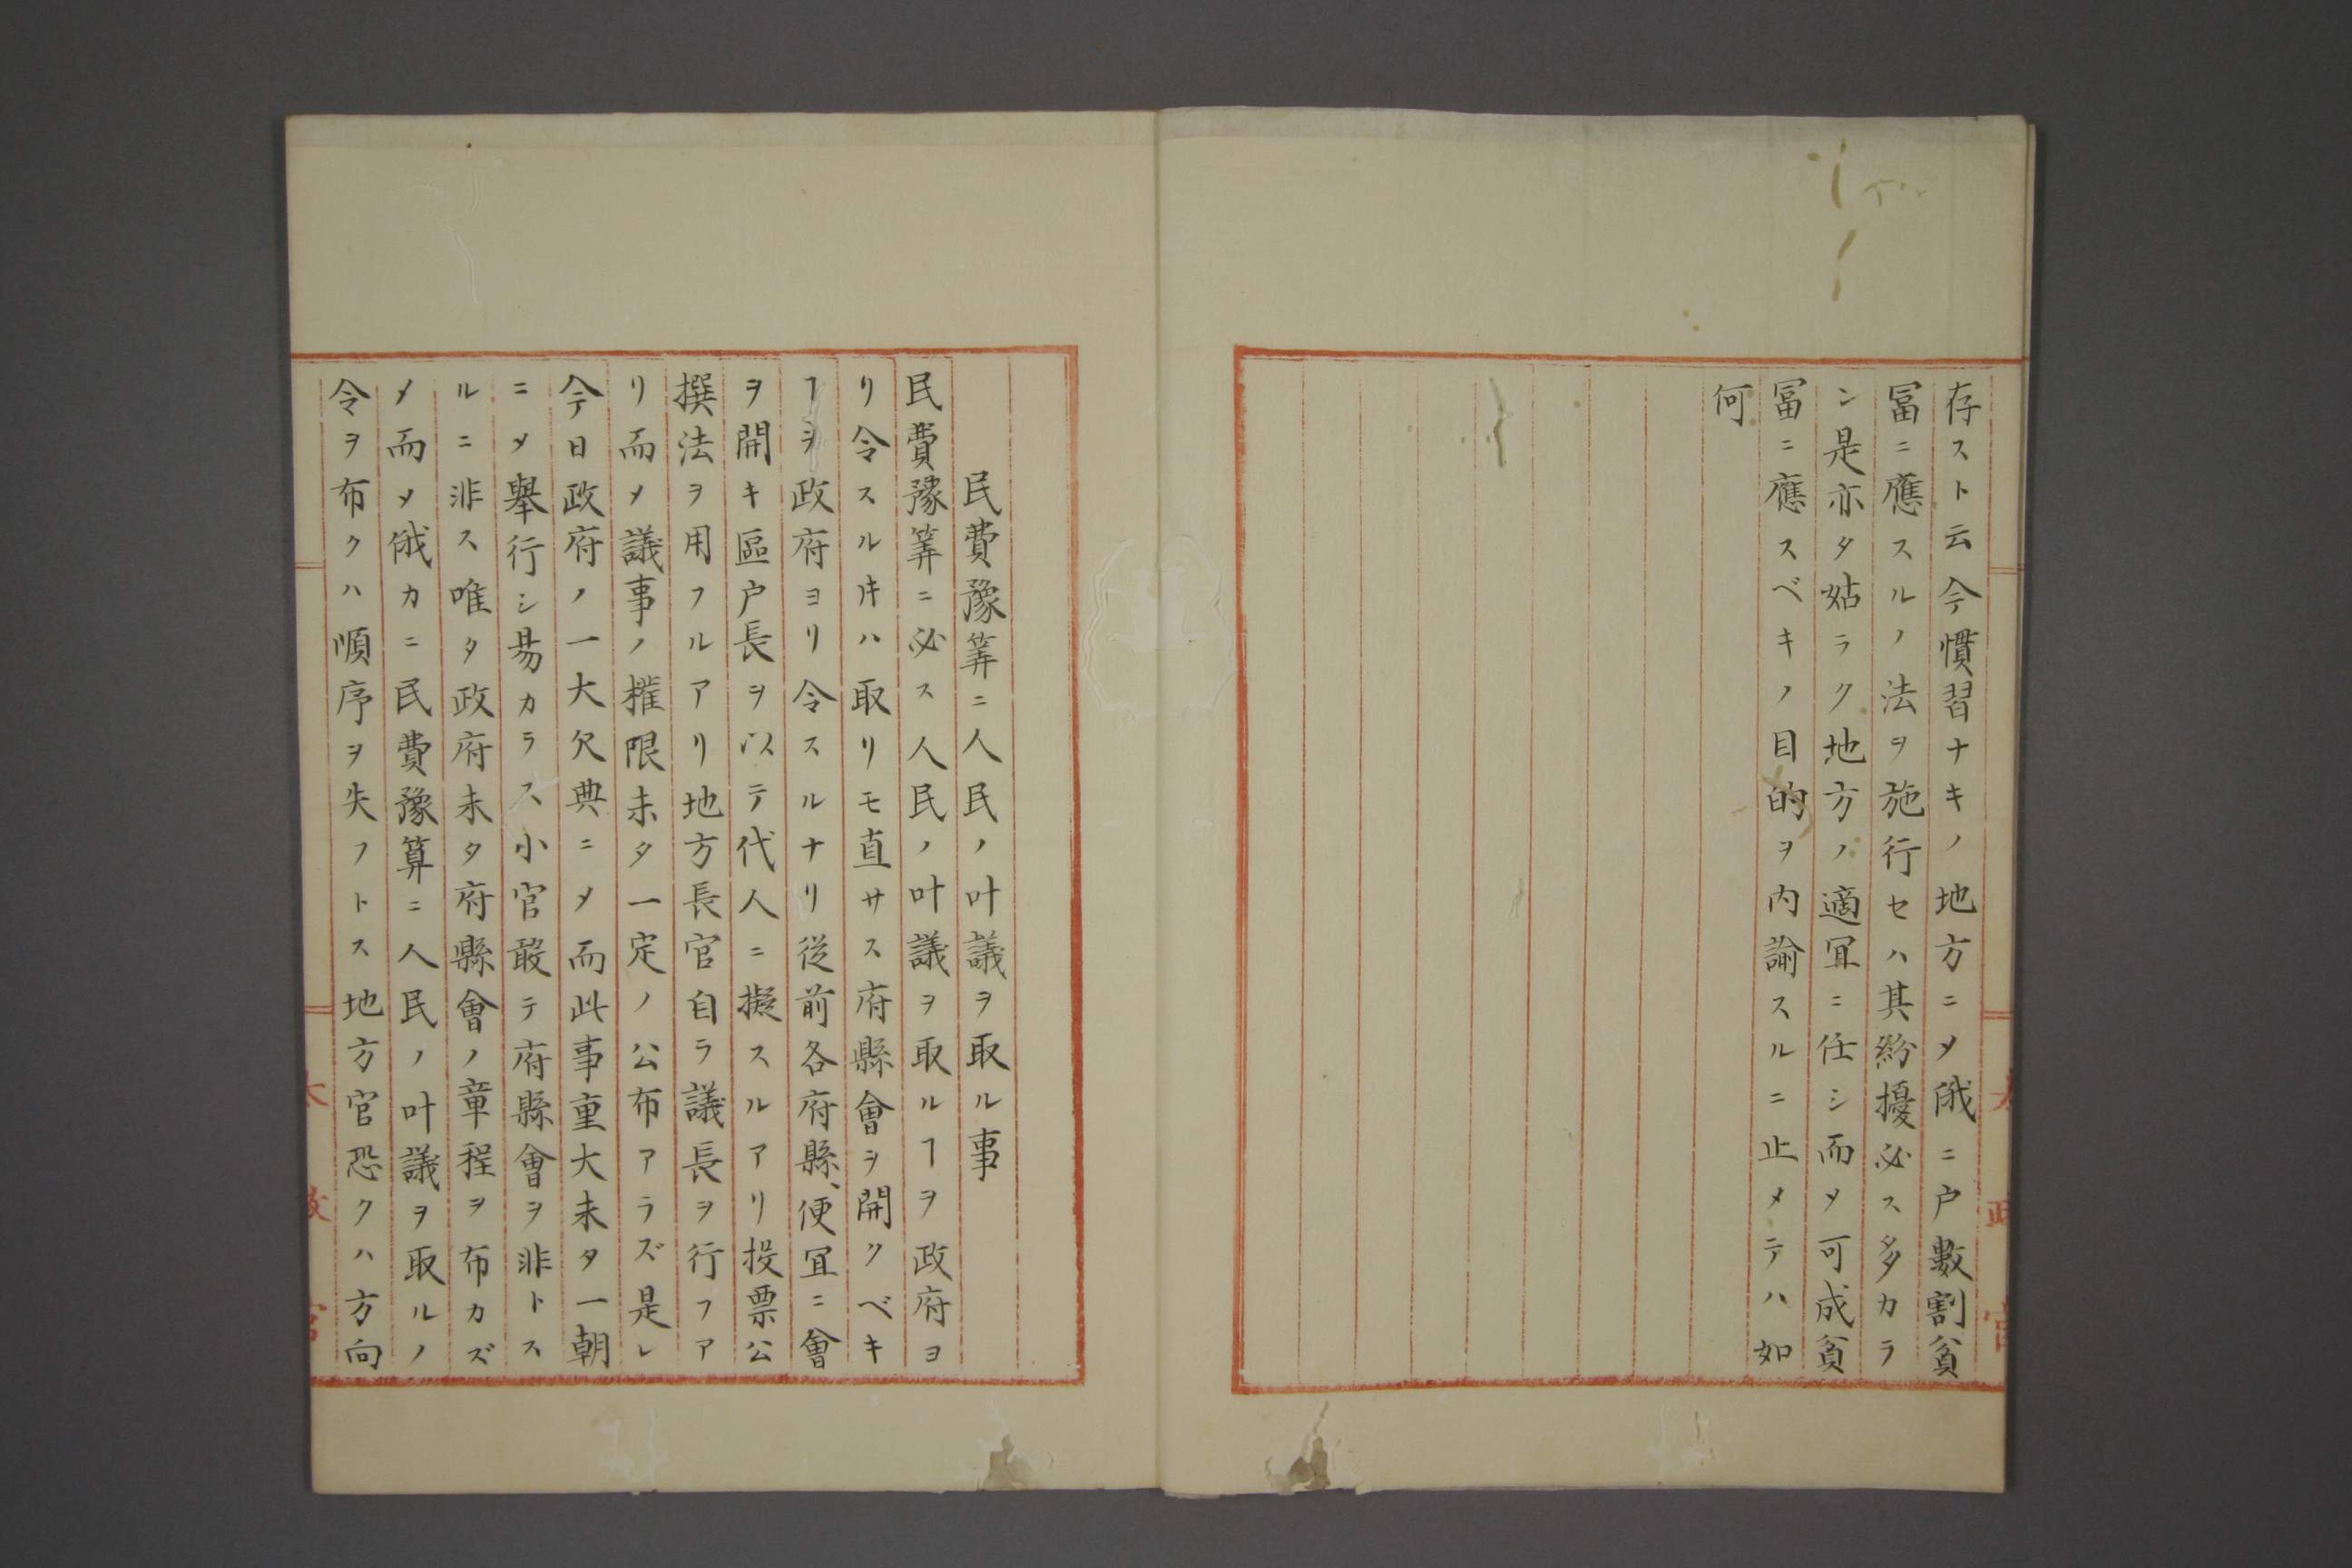 存スト云今慣習ナキノ地方ニ〆俄ニ户數割貧
冨ニ應スルノ法ヲ施行セハ其紛擾必ス多カラ
シ是亦タ姑ラク地方ノ適冝ニ任シ而〆可成貧
冨ニ應スベキノ目的ヲ内諭スルニ止メテハ如
何
太政官
民費豫筭ニ人民ノ叶議ヲ取ル事
民費豫筭ニ必ス人民ノ叶議ヲ取ルヿヲ政府ヨ
リ令スル𪜈ハ取リモ直サス府縣會ヲ開クベキ
ヿヲ政府ヨリ令スルナリ従前各府縣、便冝ニ會
ヲ開キ區户長ヲ以テ代人ニ擬スルアリ投票公
撰法ヲ用フルアリ地方長官自ラ議長ヲ行フア
リ而〆議事ノ權限未タ一定ノ公布アラズ是レ
今日政府ノ一大欠典ニ〆而此事重大未タ一朝
ニ〆舉行シ易カラス小官敢テ府縣會ヲ非トス
ルニ非ス唯タ政府未タ府縣會ノ章程ヲ布カズ
〆而〆俄カニ民費豫算ニ人民ノ叶議ヲ取ルノ
令ヲ布クハ順序ヲ失フトス地方官恐クハ方向
太政官